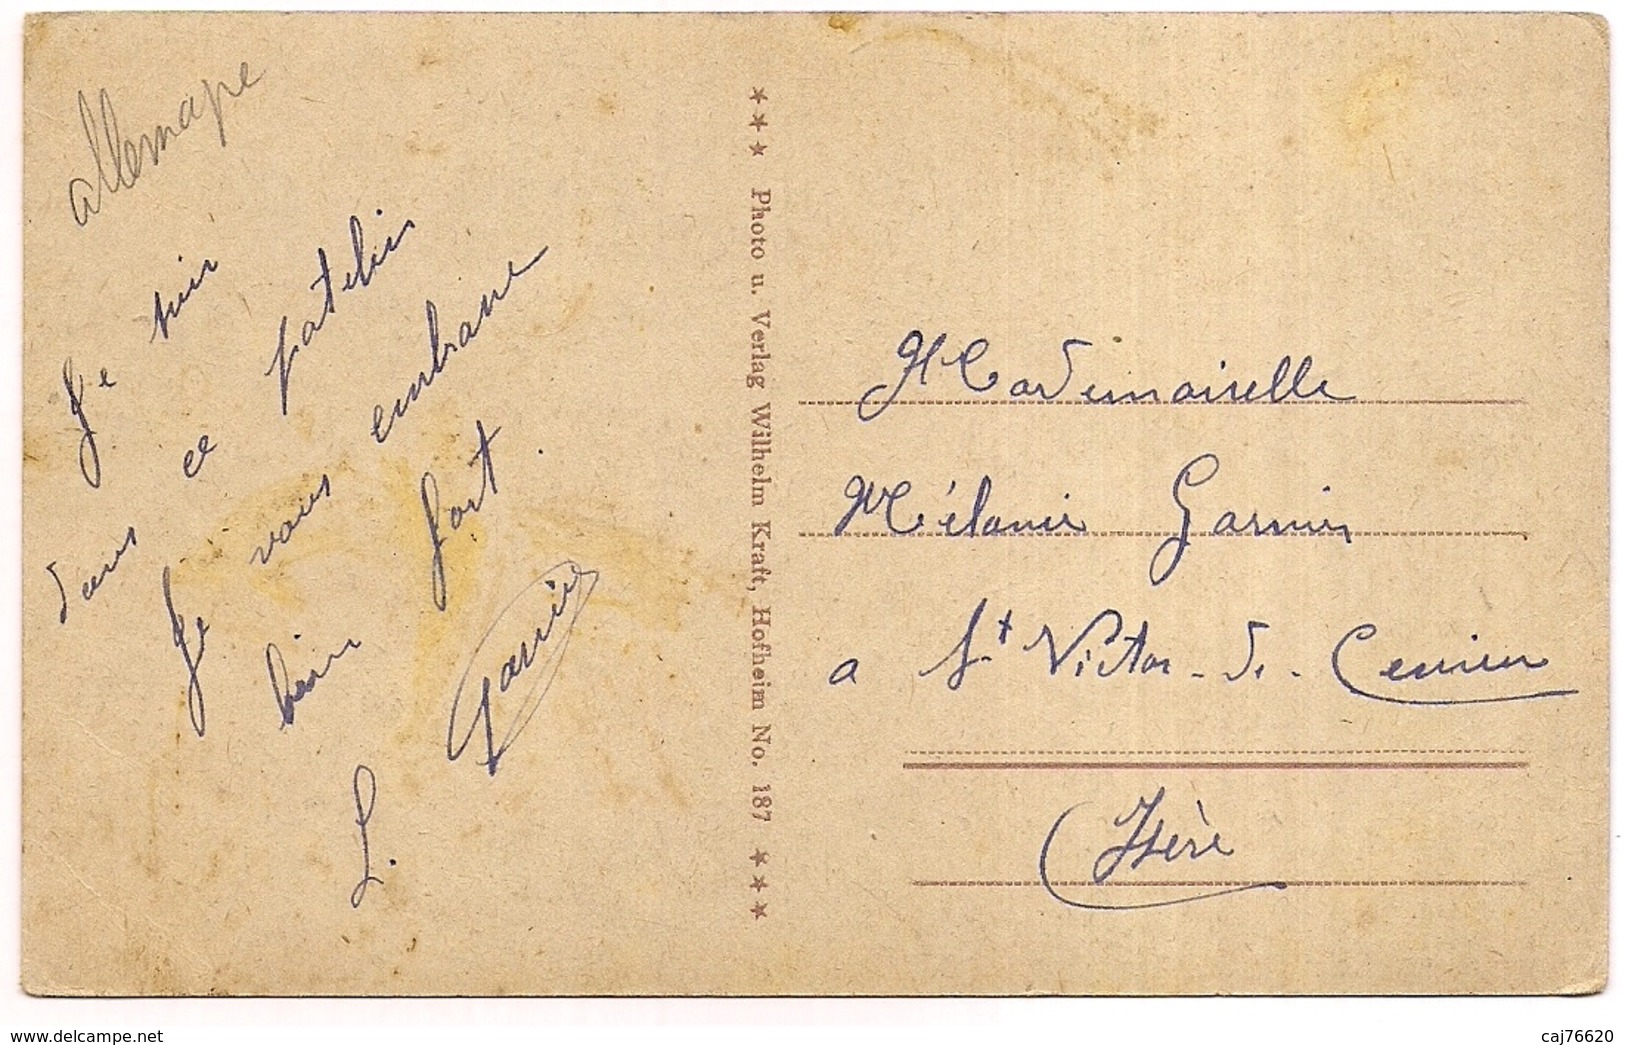 allemagne
Je suis
dans ce patelin
Je vous embrasse
bien fort.
L. Garnier
*** Photo u. Verlag Wilhelm Kraft, Hofheim No. 187 ***
Mademoiselle
Mélanie Garnier
a St Victor-de-Cessieu
Isère
delcampe.net
caj76620